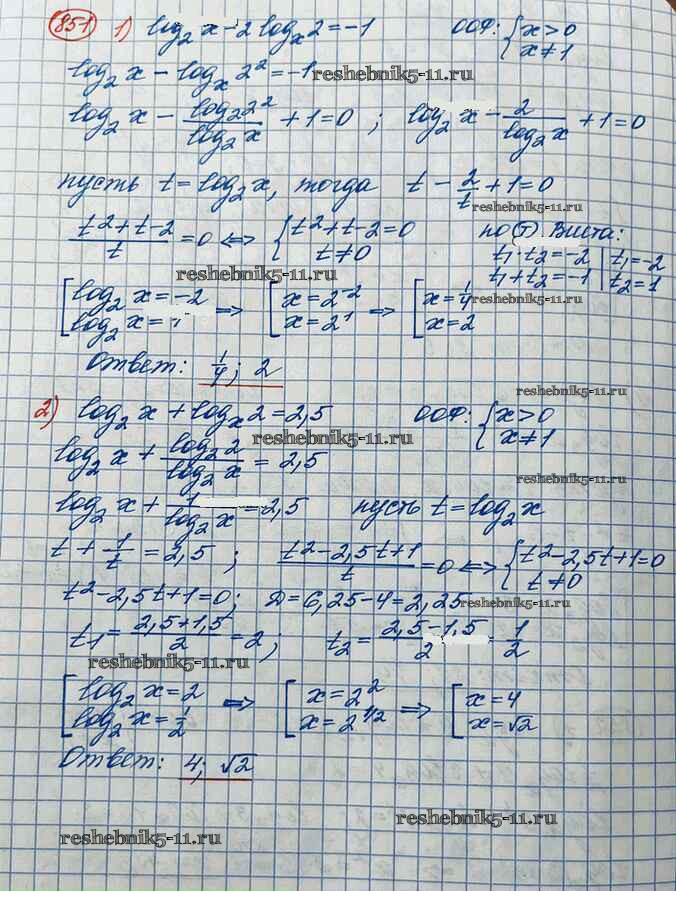 851 1) log₂ x - 2 logₓ 2 = -1 ООФ: { x > 0 x ≠ 1
log₂ x - logₓ 2² = -1 reshebnik5-11.ru
log₂ x - log₂ 2² / log₂ x + 1 = 0 ; log₂ x - 2 / log₂ x + 1 = 0
пусть t = log₂ x, тогда t - 2/t + 1 = 0
reshebnik5-11.ru
(t² + t - 2) / t = 0 ⇔ { t² + t - 2 = 0 t ≠ 0 по (Т). Виета:
t₁ · t₂ = -2 | t₁ = -2
t₁ + t₂ = -1 | t₂ = 1
reshebnik5-11.ru
[ log₂ x = -2 log₂ x = 1 ⇒ [ x = 2⁻² x = 2¹ ⇒ [ x = 1/4 x = 2
reshebnik5-11.ru
Ответ: 1/4; 2
reshebnik5-11.ru
2) log₂ x + logₓ 2 = 2,5 ООФ: { x > 0 x ≠ 1
reshebnik5-11.ru
log₂ x + log₂ 2 / log₂ x = 2,5
reshebnik5-11.ru
log₂ x + 1 / log₂ x = 2,5 пусть t = log₂ x
t + 1/t = 2,5 ; (t² - 2,5t + 1) / t = 0 ⇔ { t² - 2,5t + 1 = 0 t ≠ 0
t² - 2,5t + 1 = 0; D = 6,25 - 4 = 2,25
reshebnik5-11.ru
t₁ = (2,5 + 1,5) / 2 = 2 ; t₂ = (2,5 - 1,5) / 2 = 1/2
reshebnik5-11.ru
[ log₂ x = 2 log₂ x = 1/2 ⇒ [ x = 2² x = 2^1/2 ⇒ [ x = 4 x = √2
Ответ: 4; √2
reshebnik5-11.ru
reshebnik5-11.ru